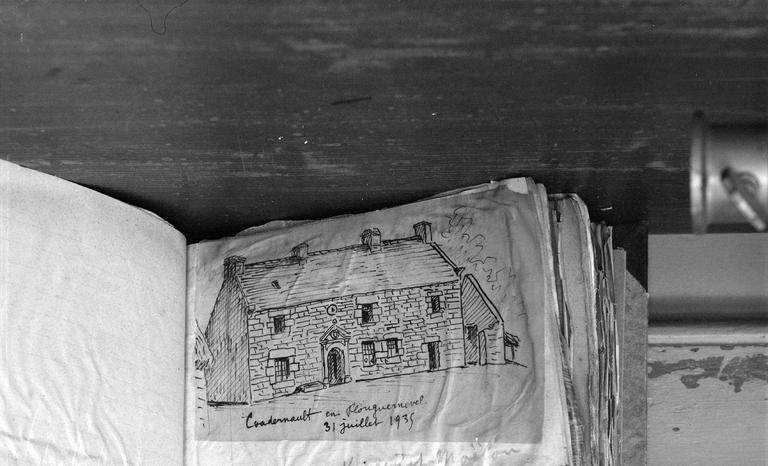 Coadernault en Plouguernevel.
31 juillet 1935